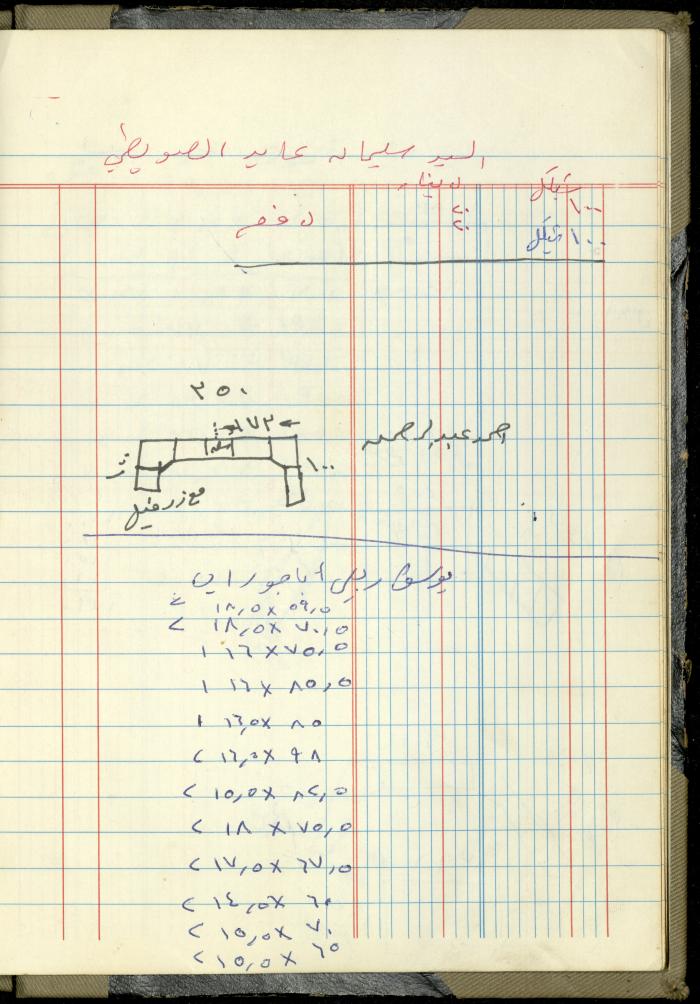 السيد سليمان عايد الصويطي
شيكل دينار
١٠٠ ٢٠ دفع
١٠٠ شيكل ٢٠
٣٥٠
٧٢
احمد عبدالرحمن
١٠٠
مع زرفيل
يوسف ربعي أباجورات
٥٩,٥ × ١٨,٥ ٢
٧٠,٥ × ١٨,٥ ٢
٧٥,٥ × ١٦ ١
٨٥,٥ × ١٦ ١
٨٥ × ١٦,٥ ١
٩٨ × ١٦,٥ ٢
٨٢,٥ × ١٥,٥ ٢
٧٥,٥ × ١٨ ٢
٦٧,٥ × ١٧,٥ ٢
٦٠ × ١٤,٥ ٢
٧٠ × ١٥,٥ ٢
٦٥ × ١٥,٥ ٢